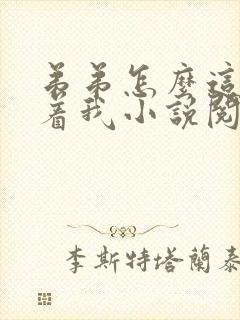 弟弟怎麼這
着我小說閱
李斯特塔蘭泰